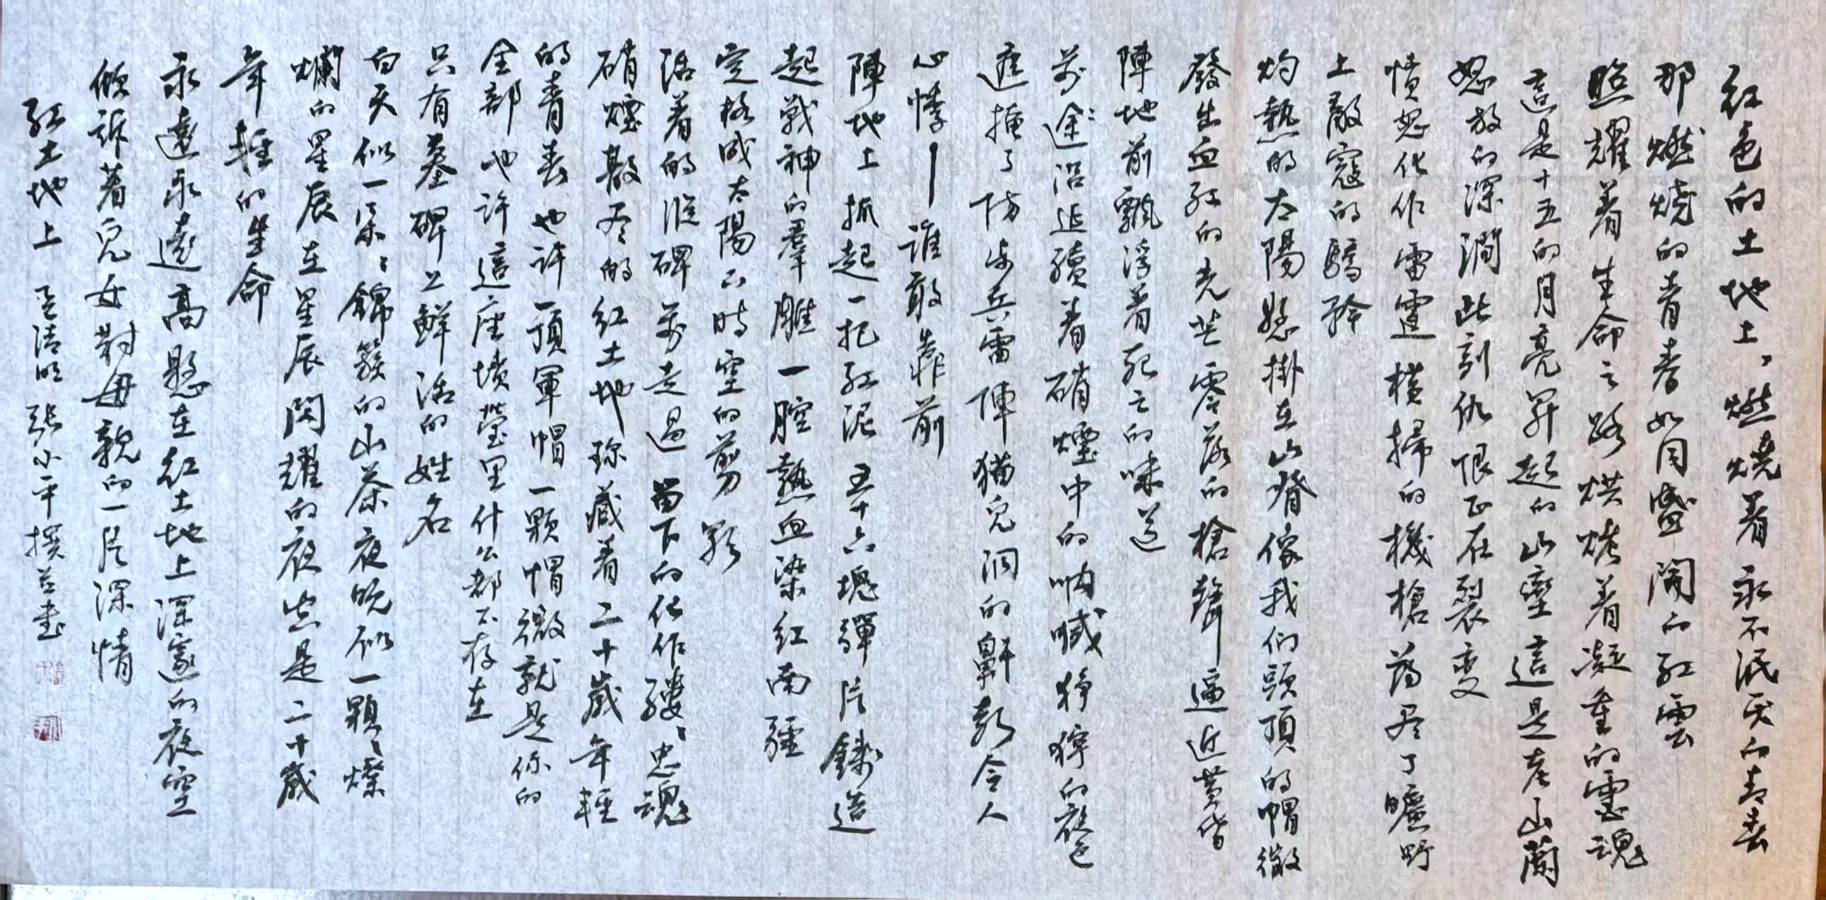 红色的土地上，燃燒着永不泯灭的青春
那燃燒的青春如同盛開的紅雲
照耀着生命之路烘烤着凝重的靈魂
這是十五的月亮昇起的山巒這是老山蘭
怒放的深澗此刻仇恨正在裂变
憤怒化作雷霆横掃的機槍蕩尽了曠野
上敵寇的驕矜
灼熱的太陽懸掛在山脊像我们頭頂的帽徽
發出血红的光芒零落的槍聲逼近黄昏
陣地前飄浮着死亡的味道
前途、沿途
硝煙中的呐喊狰獰的夜色
遮掩了防步兵雷陣猫兒洞的鼾聲令人
心悸——誰敢靠前
陣地上抓起一把紅泥五十六塊彈片鑄造
起戰神的羣雕一腔熱血染红南疆
定格成太陽不時空的剪影
活着的
碑前走過留下的化作縷縷忠魂
硝煙散尽的红土地珍藏着二十歲年輕
的青春也許一頂軍帽一顆帽徽就是你的
全部也許這座墳塋里什么都不存在
只有墓碑上鮮活的姓名
白天似一朵朵錦簇的山茶夜晚似一顆顆燦
爛的星辰在星辰閃耀的夜
是二十歲
年輕的生命
永遠永遠高懸在红土地上深邃的夜空
傾訴着兒女對母親的一片深情
紅土地上
清明張小平撰並書